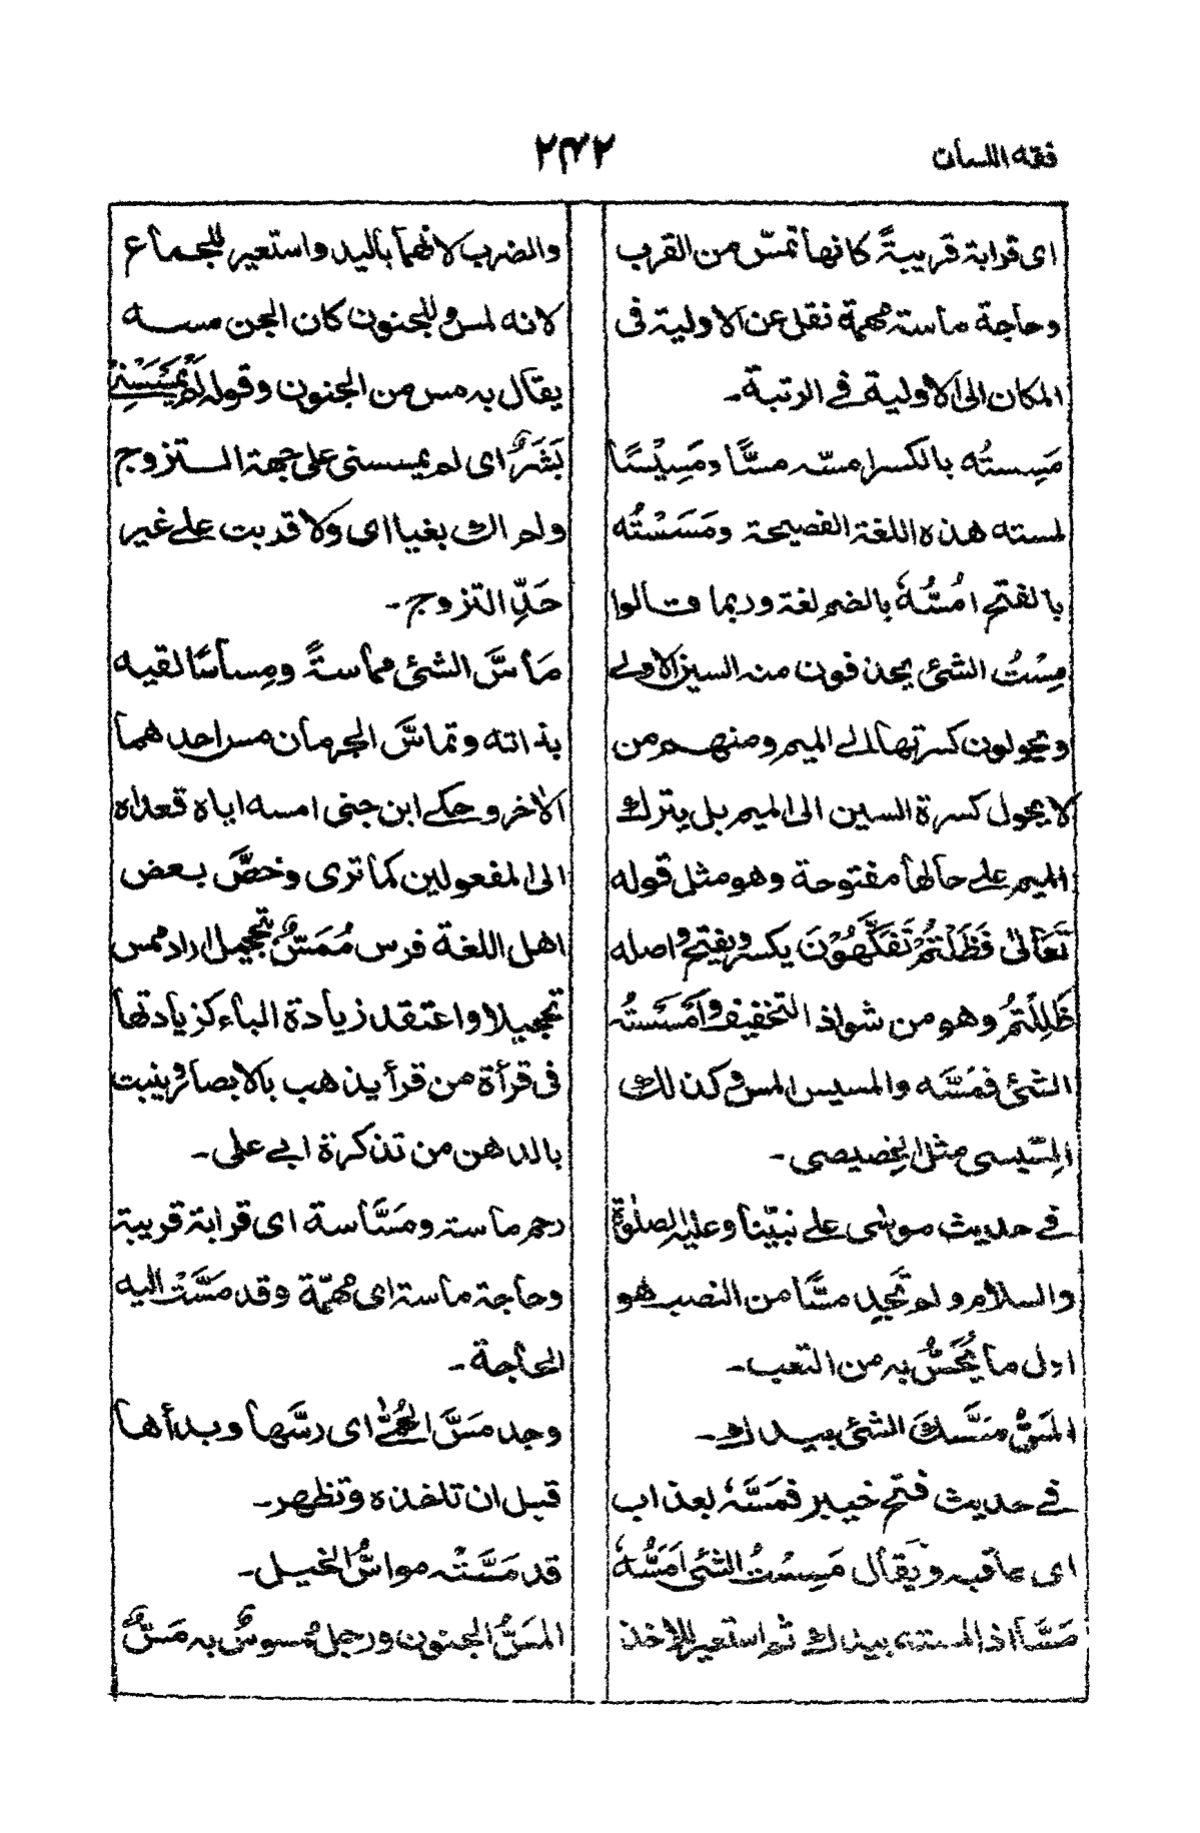 فقه اللسان
٢٤٢
اى قرابة قريبةً كانها تمسّ من القرب
وحاجة ماسة مهمة نقل عن الاولية فى
المكان الى الاولية فى الرتبة۔
مَسِستُه بالكسر امسّه مسًّا ومَسِيْسًا
لمسته هذه اللغة الفصيحة ومَسَسْتُه
بالفتح امُسُّهٗ بالضم لغة وربما قالوا
مِسْتُ الشئ يحذفون منه السين الاولى
ويحولون كسرتها الى الميم ومنهم من
لا يحول كسرة السين الى الميم بل يترك
الميم على حالها مفتوحة وهو مثل قوله
تَعَالىٰ فَظَلْتُمْ تَفَكَّهُوْنَ يكسر ويفتح واصله
ظَلِلْتُمْ وهو من شواذ التخفيف وَاَمْسَسْتُه
الشئ فمَسَّه والمسيس المس وكذلك
المِسّيسى مثل الخِصيصى۔
فى حديث موسٰى على نبيّنا وعليه الصلٰوة
والسلام ولم تَجِد مسًّا من النصب هو
اول ما يُحَسُّ به من التعب۔
المَسُّ مَسُّكَ الشئ بيدك۔
فى حديث فتح خيبر فمَسَّهٗ بعذاب
اى عاقبه ويَقال مَسِسْتُ الشئ اَمَسُّهٗ
مَسًّا اذا لمسته بيدك ثم استعير للاخذ
والضرب لانهما باليد واستعير للجماع
لانه لمس وللجنون كان الجن مسه
يقال به مس من الجنون وقوله لَمْ يَمْسَسْنِى
بَشَرٌ اى لم يمسسنى على جهة التزوج
ولم اك بغيا اى ولا قربت على غير
حَدِّ التزوج۔
مَاسَّ الشئ مماسةً ومِساسًا لقيه
بذاته وتماسَّ الجرمان مس احدهما
الاخر وحكى ابن جنى امسه اياه فعداه
الى المفعولين كما ترى وخصَّ بعض
اهل اللغة فرس مُمَسٌّ بتحجيل اراد ممس
تحجيلا واعتقد زيادة الباء كزيادتها
فى قرأة من قرأ يذهب بالابصار وينبت
بالدهن من تذكرة ابى على۔
رحم ماسة ومَسَّاسة اى قرابة قريبة
وحاجة ماسة اى مُهمّة وقد مَسَّتْ اليه
الحاجة۔
وجد مَسَّ الحُمّٰى اى رسَّها وبدأها
قبل ان تاخذه وتظهر۔
قد مَسَّتْه مواسُّ الخيل۔
المَسُّ الجنون ورجل ممسوسٌ به مَسٌّ